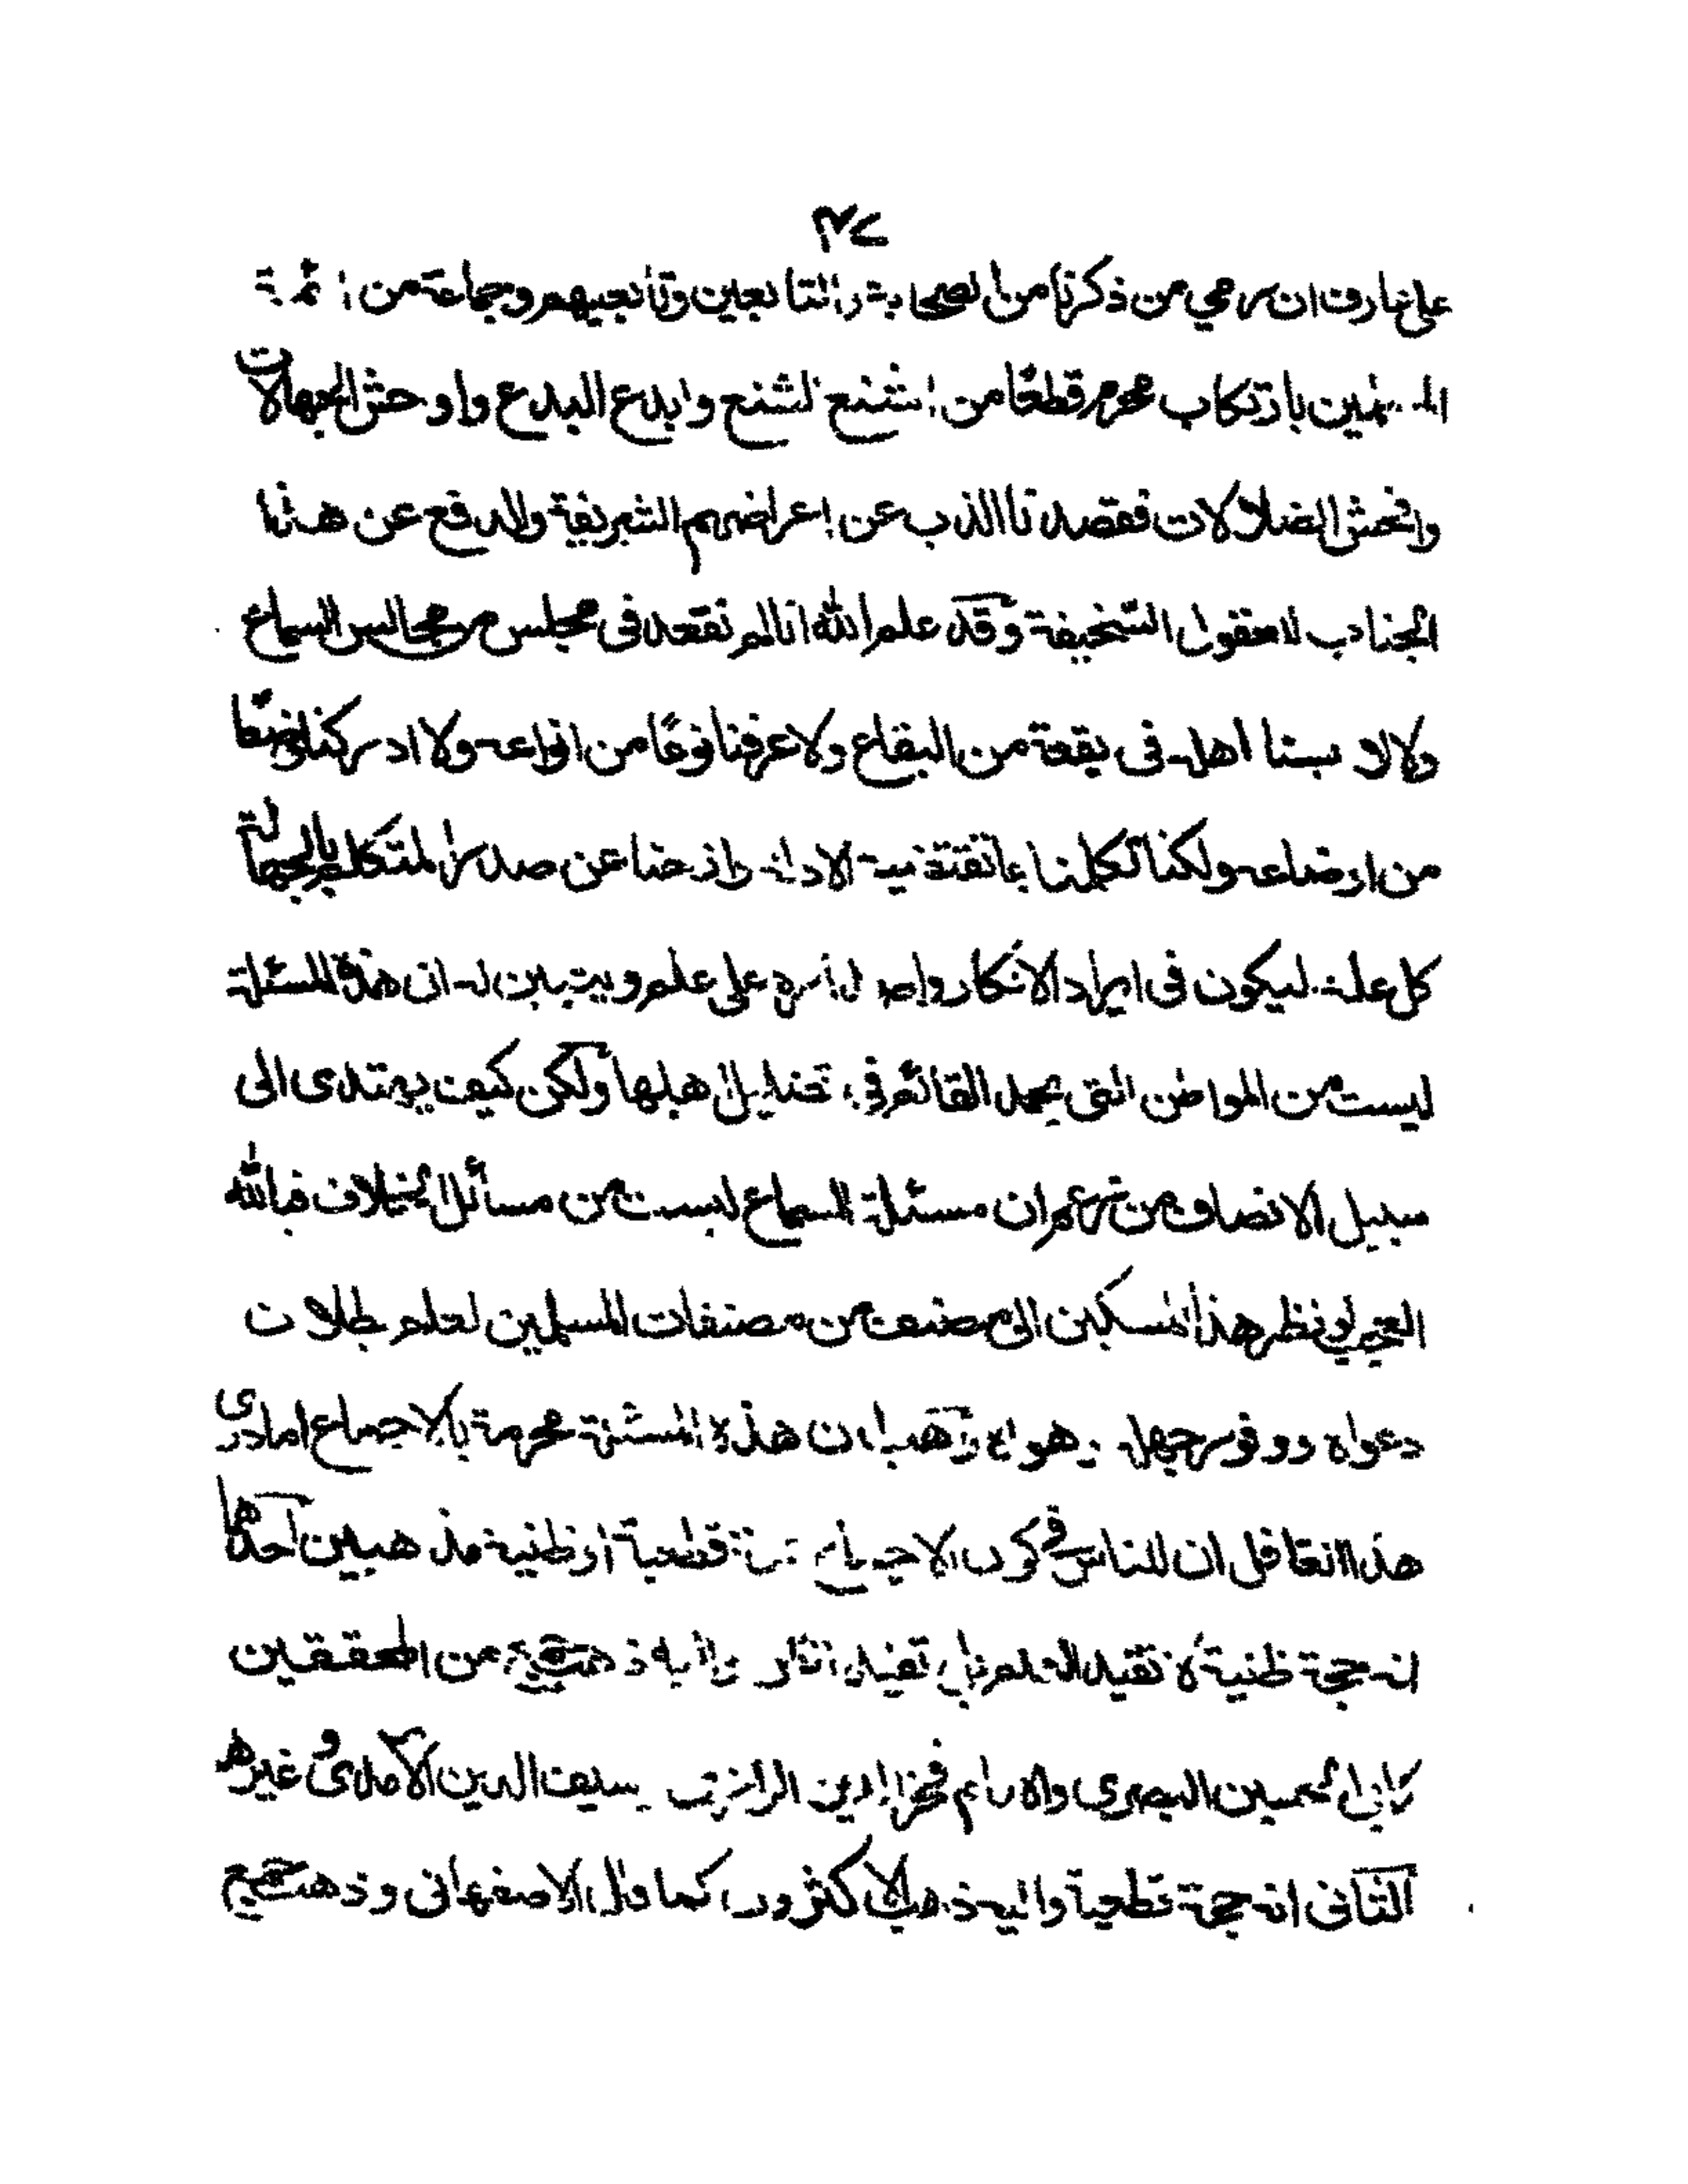 ٢٧
على عارف ان رمي من ذكرنا من الصحابة والتابعين وتابعيهم وجماعة من ائمة
المسلمين بارتكاب محرم قطعًا من اشنع الشنع وابدع البدع واوحش الجهالات
وافحش الضلالات فقصدنا الذب عن اعراضهم الشريفة والدفع عن هذا
الجناب للعقول السخيفة وقد علم الله انا لم نقعد في مجلس من مجالس السماع
ولا لابسنا اهله في بقعة من البقاع ولا عرفنا نوعًا من انواعه ولا ادركنا وضعًا
من اوضاعه ولكنا تكلمنا بما تقتضيه الادلة وازحنا عن صدر المتكلم بالجهالة
كل علة ليكون في ايراد الانكار واصداره على علم ويتبين له ان هذه المسئلة
ليست من المواطن التى يحمد القائم في تضليل اهلها ولكن كيف يهتدى الى
سبيل الانصاف من زعم ان مسئلة السماع ليست من مسائل الخلاف فبالله
العجب لو نظر هذا المسكين الى مصنف من مصنفات المسلمين لعلم بطلان
دعواه ووفور جهله وهواه وهب ان هذه المسئلة محرمة بالاجماع اما درى
هذا الغافل ان للناس في كون الاجماع حجة قطعية او ظنية مذهبين احدهما
انه حجة ظنية لا تفيد العلم بل تفيد الظن واليه ذهب جمع من المحققين
كابي الحسين البصرى والامام فخر الدين الرازى وسيف الدين الآمدى وغيرهم
الثانى انه حجة قطعية واليه ذهب الاكثرون كما قال الاصفهانى وذهب جمع